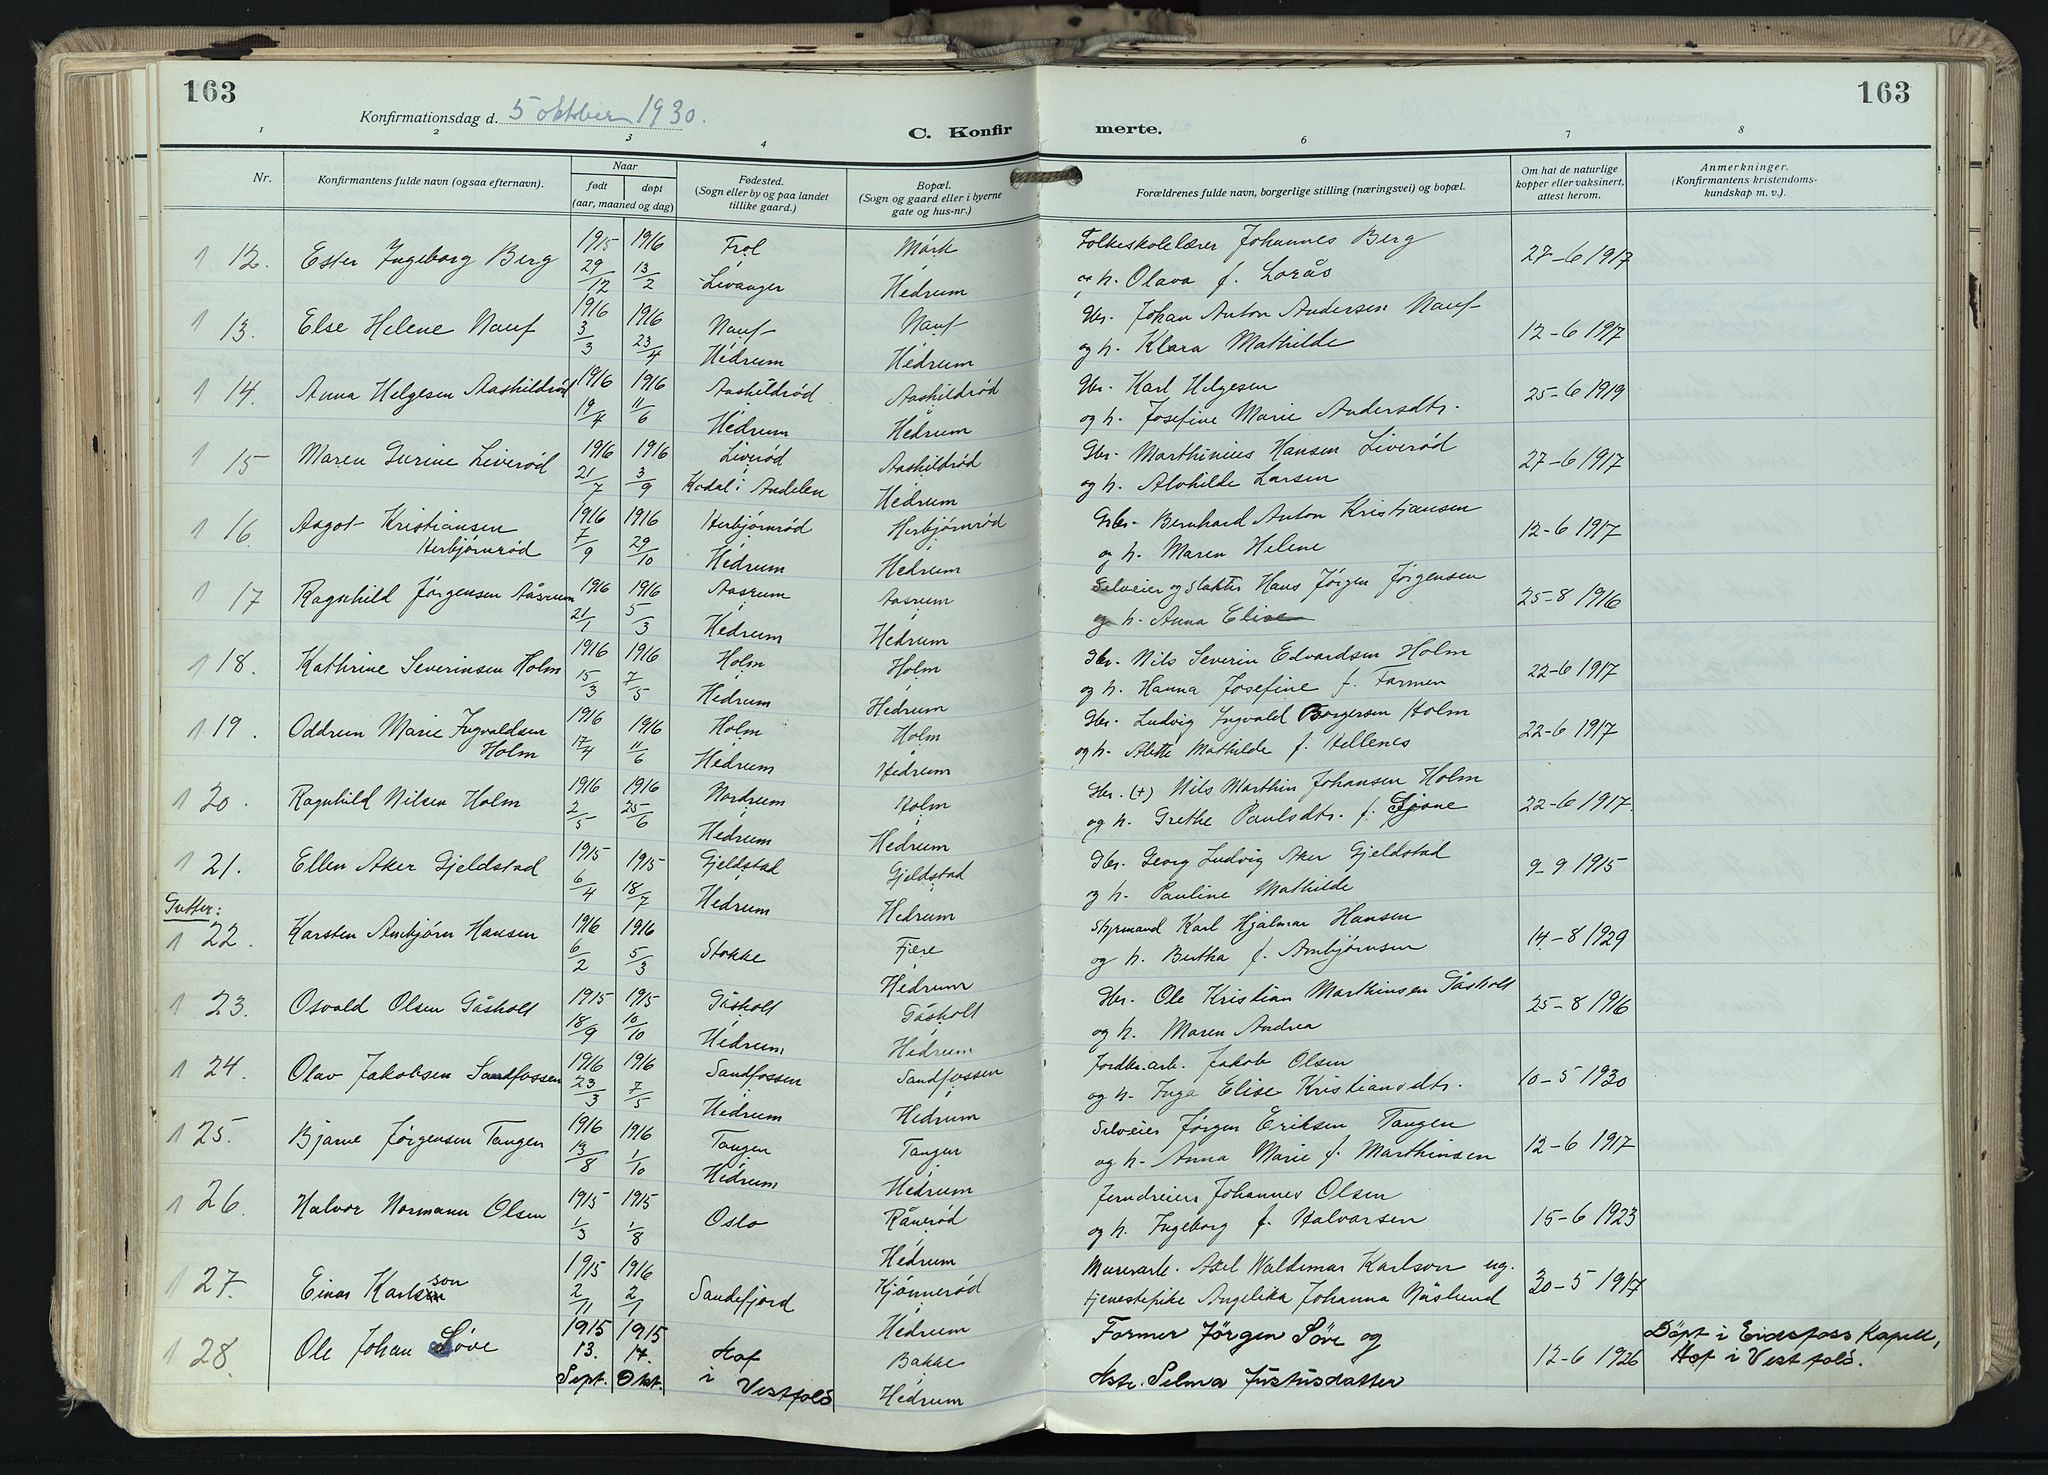 163
163
Konfirmationsdag d. 5 oktober 1930.
C. Konfirmerte.
1 2 3 4 6 7 8
Nr.
Konfirmantens fulde navn (ogsaa efternavn).
Naar
født
døpt
(aar, maaned og dag)
Fødested.
(Sogn eller by og paa landet
tillike gaard.)
Bopæl.
(Sogn og gaard eller i byerne
gate og hus-nr.)
Forældrenes fulde navn, borgerlige stilling (næringsvei) og bopæl.
Om hat de naturlige
kopper eller vaksinert,
attest herom.
Anmerkninger.
(Konfirmantens kristendoms-
kundskap m. v.).
1 12. Ester Ingeborg Berg 1915 29/12 1916 13/2 Frol Levanger Mørk Hedrum Folkeskolelærer Johannes Berg
og h. Olava f. Lorås 27-6 1917
1 13. Else Helene Nauf 1916 3/3 1916 23/4 Nauf Hedrum Nauf Hedrum Gbr. Johan Anton Andersen Nauf
og h. Klara Mathilde 12-6 1917
1 14. Anna Helgesen Aashildrød 1916 19/4 1916 11/6 Aashildrød Hedrum Aashildrød Hedrum Gbr. Karl Helgesen
og h. Josefine Marie Andersdtr. 25-6 1919
1 15 Maren Gurine Liverød 1916 21/7 1916 3/9 Liverød Kodal i Andebu Aashildrød Hedrum Gbr. Marthinius Hansen Liverød
og h. Alvhilde Larsen 27-6 1917
1 16. Aagot Kristiansen
Herbjørnrød 1916 7/9 1916 29/10 Herbjørnrød Hedrum Herbjørnrød Hedrum Gbr. Bernhard Anton Kristiansen
og h. Maren Helene 12-6 1917
1 17 Ragnhild Jørgensen Åsrum 1916 21/1 1916 5/3 Aasrum Hedrum Aasrum Hedrum Selveier og slakter Hans Jørgen Jørgensen
og h. Anna Elise 25-8 1916
1 18. Kathrine Severinsen Holm 1916 15/3 1916 7/5 Holm Hedrum Holm Hedrum Gbr. Nils Severin Edvardsen Holm
og h. Hanna Josefine f. Farmen 22-6 1917
1 19. Oddrun Marie Ingvaldsen
Holm 1916 17/4 1916 11/6 Holm Hedrum Holm Hedrum Gbr. Ludvig Ingvald Borgersen Holm
og h. Alette Mathilde f. Hellenes 22-6 1917
1 20. Ragnhild Nilsen Holm 1916 2/5 1916 25/6 Nordrum Hedrum Holm Hedrum Gbr. (+) Nils Marthin Johansen Holm
og h. Grethe Paulsdtr. f. 22-6 1917.
1 21. Ellen Aker Gjeldstad 1915 6/4 1915 18/7 Gjeldstad Hedrum Gjeldstad Hedrum Gbr. Georg Ludvig Aker Gjeldstad
og h. Pauline Mathilde 9-9 1915
Gutter:
1 22. Karsten Arnbjørn Hansen 1916 6/2 1916 5/3 Stokke Fjære Hedrum Styrmand Karl Hjalmar Hansen
og h. Bertha f. Arnbjørnsen 14-8 1929
1 23. Osvald Olsen Gåsholt 1915 18/9 1915 10/10 Gåsholt Hedrum Gåsholt Hedrum Gbr. Ole Kristian Marthinsen Gåsholt
og h. Maren Andrea 25-8 1916
1 24. Olav Jakobsen Sandfossen 1916 23/3 1916 7/5 Sandfossen Hedrum Sandfossen Hedrum Jordbr.arb. Jakob Olsen
og h. Inga Elise Kristiansdtr. 10-5 1930
1 25. Bjarne Jørgensen Tangen 1916 13/8 1916 1/10 Tangen Hedrum Tangen Hedrum Selveier Jørgen Eriksen Tangen
og h. Anna Marie f. Marthinsen 12-6 1917
1 26. Halvor Normann Olsen 1915 1/3 1915 1/8 Oslo Rånerød Hedrum Jerndreier Johannes Olsen
og h. Ingeborg f. Halvorsen 15-6 1923
1 27. Einar Karlson 1915 2/11 1916 2/1 Sandefjord Kjønnerød Hedrum Murerarb. Axel Waldemar Karlson ug.
tjenestepike Angelika Johanna Näslund 30-5 1917
1 28. Ole Johan Søve 1915 13. Sept. 1915 17. Okt. Hof i Vestfold Bakke Hedrum Farmer Jørgen Søve og
Hstr. Selma Justusdatter 12-6 1926 Døpt i Eidsfoss Kapell,
Hof i Vestfold.